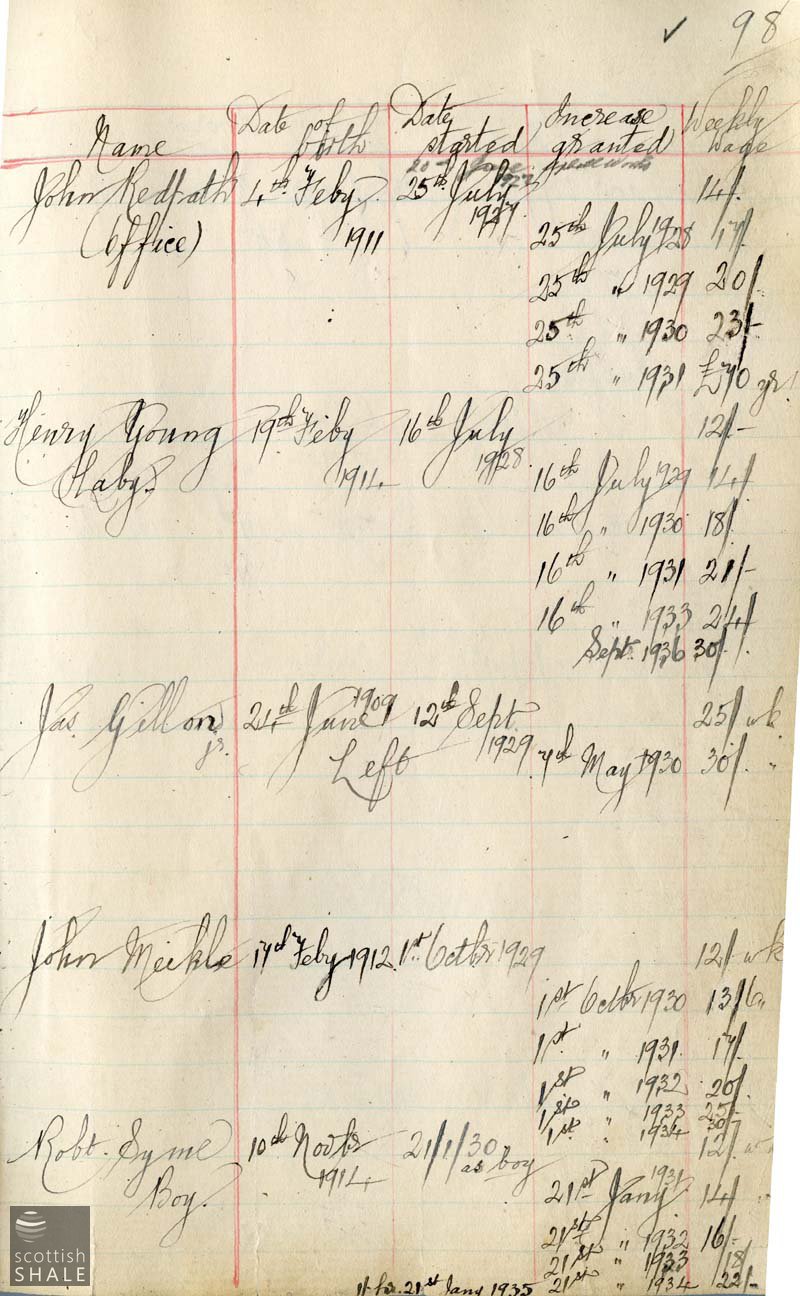 ✓ 98
Name Date of birth Date started Increase granted Weekly wage
John Redpath 4th Feby 1911 25th July 1927 14/-
(Office) 25th July 1928 17/-
25th " 1929 20/-
25th " 1930 23/-
25th " 1931 £70 yr.
Henry Young 19th Feby 1914 16th July 1928 12/-
Laby. 16th July 1929 14/-
16th " 1930 18/-
16th " 1931 21/-
16th " 1933 24/-
Sept. 1936 30/-
Jas. Gillon jr. 24th June 1909 12th Sept. 1929 25/- wk
Left 7th May 1930 30/- "
John Meikle 17th Feby 1912 1st Octbr 1929 12/- wk
1st Octbr 1930 13/6 "
1st " 1931 17/-
1st " 1932 20/-
1st " 1933 25/-
1st " 1934 30/-
Robt. Syme 10th Novbr 1914 21/1/30 as boy 12/- wk
Boy. 21st Jany 1931 14/- "
21st " 1932 16/-
21st " 1933 18/-
21st " 1934 22/-
21st Jany 1935
scottish
SHALE